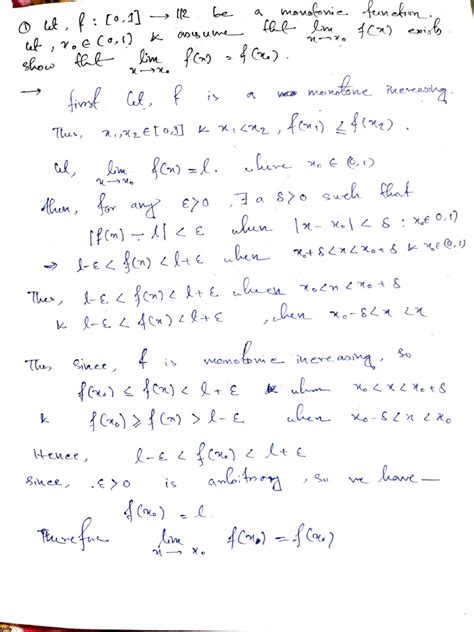 ① Let, f : [0,1] → ℝ be a monotonic function.
Let, x₀ ∈ (0,1) & assume that lim_{x→x₀} f(x) exists
show that lim_{x→x₀} f(x) = f(x₀).
→ first let, f is a monotone increasing.
Thus, x₁,x₂ ∈ [0,1] & x₁<x₂, f(x₁) ≤ f(x₂).
Let, lim_{x→x₀} f(x) = l. where x₀ ∈ (0,1)
then, for any ε>0, ∃ a δ>0 such that
|f(x) - l| < ε when |x - x₀| < δ ; x₀∈(0,1)
⇒ l-ε < f(x) < l+ε when x₀+δ<x<x₀+δ & x₀∈(0,1)
Thus, l-ε < f(x) < l+ε when x₀<x<x₀+δ
& l-ε < f(x) < l+ε , when x₀-δ<x<x
Thus since, f is monotone increasing, so
f(x₀) ≤ f(x) < l+ε & when x₀<x<x₀+δ
& f(x₀) ≥ f(x) > l-ε when x₀-δ<x<x₀
Hence, l-ε < f(x₀) < l+ε
since, ε>0 is arbitrary, so we have—
f(x₀) = l.
Therefore lim_{x→x₀} f(x₀) = f(x₀)